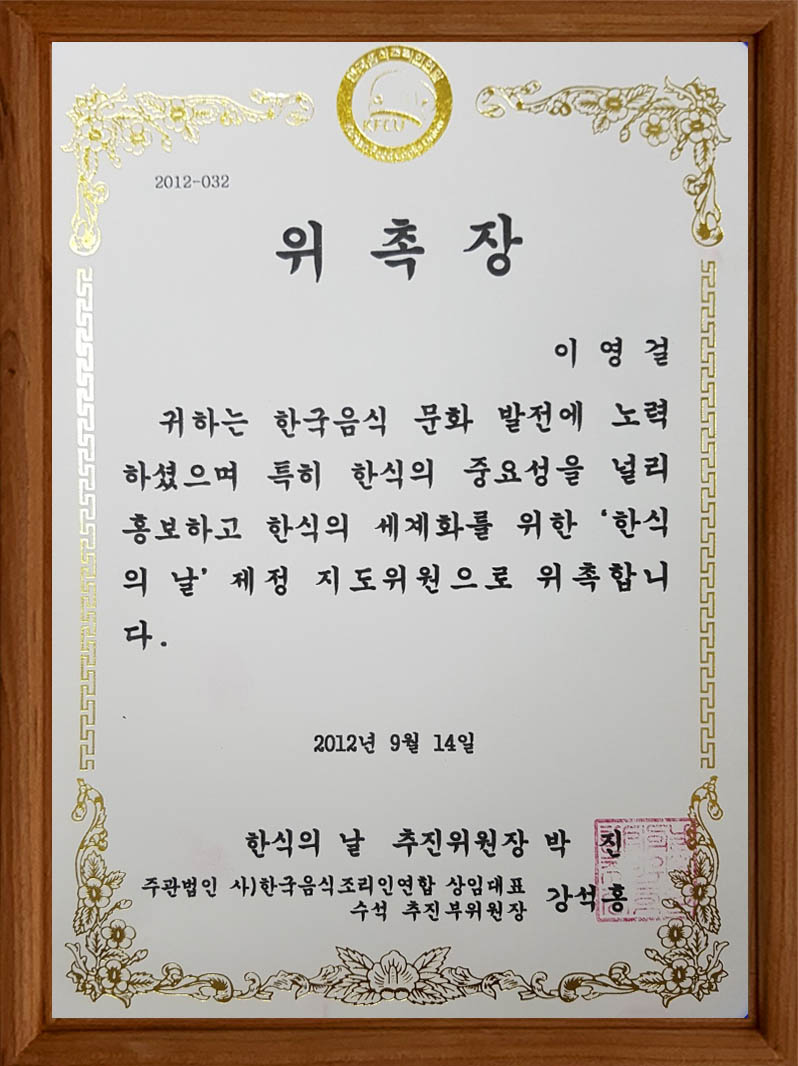 KFCU
2012-032
위 촉 장
이 영 걸
귀하는 한국음식 문화 발전에 노력
하셨으며 특히 한식의 중요성을 널리
홍보하고 한식의 세계화를 위한 '한식
의 날' 제정 지도위원으로 위촉합니
다.
2012년 9월 14일
한식의 날 추진위원장 박 진
주관법인 사)한국음식조리인연합 상임대표
수석 추진부위원장 강석홍